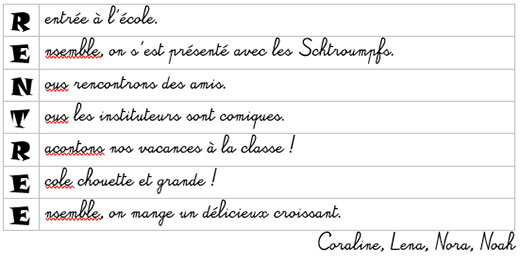 R entrée à l'école.
E nsemble, on s'est présenté avec les Schtroumpfs.
N ous rencontrons des amis.
T ous les instituteurs sont comiques.
R acontons nos vacances à la classe !
E cole chouette et grande !
E nsemble, on mange un délicieux croissant.
Coraline, Lena, Nora, Noah